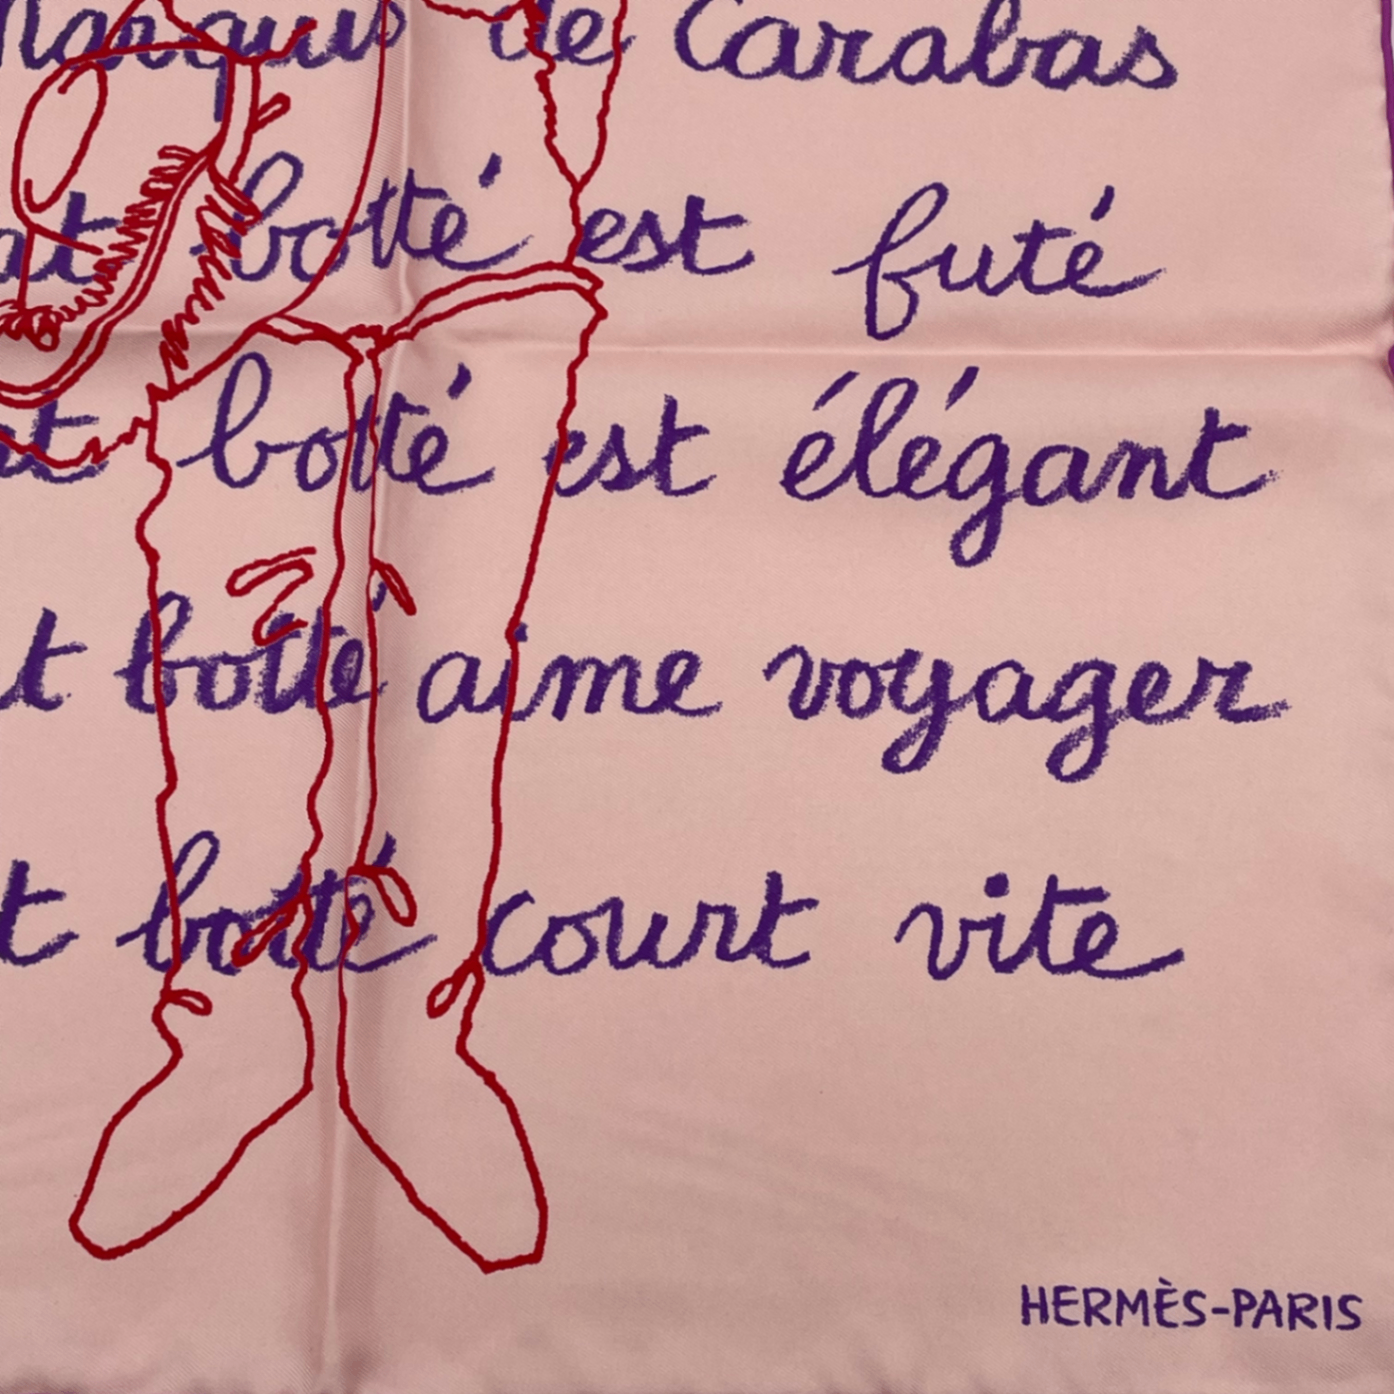 Marquis de Carabas
at botté est futé
at botté est élégant
t botté aime voyager
t botté court vite
HERMÈS-PARIS